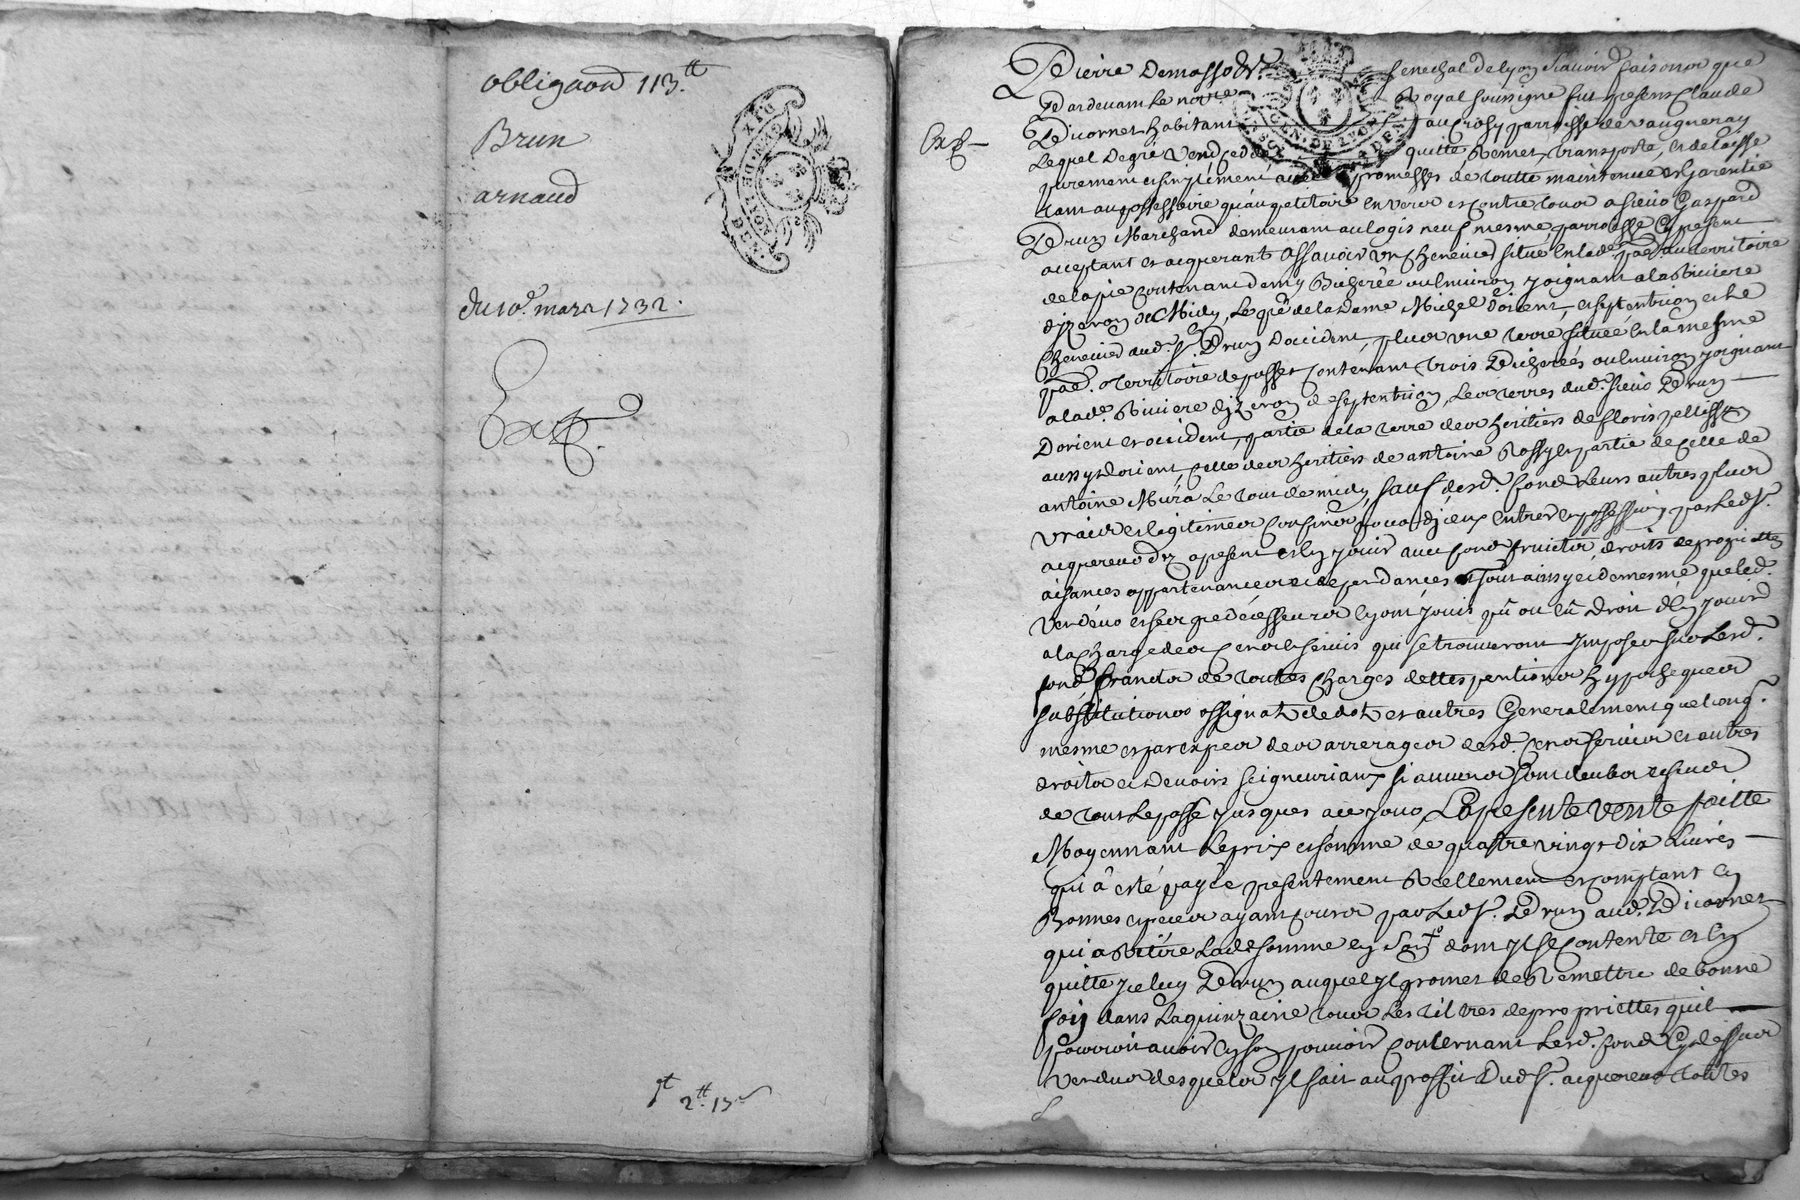 obligaon 113.tt
Brun
arnaud
du 10e. mars 1732.
Exp.
2tt. 13
DIX
GEN. DE LYON
Exp
Pierre Demasso Sr. senechal de lyon scavoir faisons que
Pardevant Le nore Royal soussigné fut present Claude
Picornet habitant au Crosy parroisse de vaugneray
Lequel de gré vend cedde quitte Remet transporte, et delaisse
purement et simplement avec promesses de toutte maintenue et Garentie
tant au possessoire qu'au petitoire envers et contre tous a sieur Gaspard
Brun Marchand demeurant au logis neuf mesme parroisse Cy present
acceptant et acquerant assavoir un chenevier situé en lad. pae. au territoire
de lapie contenant demy Bicherée ou environ joignant a la Riviere
d'jzeron de Midy, Le pré de la Dame Michel d'orient, et septentrion et le
chenevier aud. Sr. Brun d'occident, plus une terre située en la mesme
pae. territoire de passet contenant trois Bicherées ou environ joignant
a lade. Riviere d'jzeron de septentrion, les terres dud. sieur Brun
D'orient et occident, partie de la terre des heritiers de floris pellisson
aussy d'orient, celle des heritiers de antoine Rossy et partie de celle de
antoine Mura Le tout de midy, sauf desd. fonds leurs autres plus
vrais et legitimes confins pour d'jceux entrer en possession par led. Sr.
acquereur dez apresent et en jouir avec fonds fruicts, droits de propriettes
aisances appartenances et dependances et tout ainsy et de mesme que led.
vendeur et ses predecesseurs en ont jouis, pû ou eû droit d'en jouir
a la charge des cens et servis qui se trouveront Imposés sur lesd.
fonds francs de touttes charges dettes pentions hypotheques
substitutions assignats de dots et autres Generalement quelconq.
mesme et par exprés des arrerages desd. cens servis et autres
droits et Devoirs seigneuriaux si aucuns sont deubs et escheus
de tout le passé jusques a ce jour, La presente vente faitte
Moyennant Le prix et somme de quattre vingt dix Livres
qui a esté payée presentement Reellement et comptant en
Bonnes especes ayant cours par Led. Sr. Brun aud. Picornet
qui a Retiré Lade. somme dont jl se contente et en
quitte jceluy Brun auquel jl promet de Remettre de bonne
foy dans La quinzaine tous les tiltres de propriettes qu'il
pourroit avoir en son pouvoir concernant Lesd. fonds Cy dessus
vendus desquels jl fait au proffit Dud. Sr. acquereur touttes